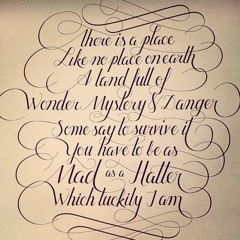 There is a place
Like no place on earth
A land full of
Wonder Mystery & Danger
Some say to survive it
You have to be as
Mad as a Hatter
Which luckily I am